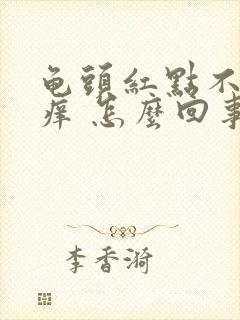 龟頭紅點不
痒 怎麽回事
李香漪